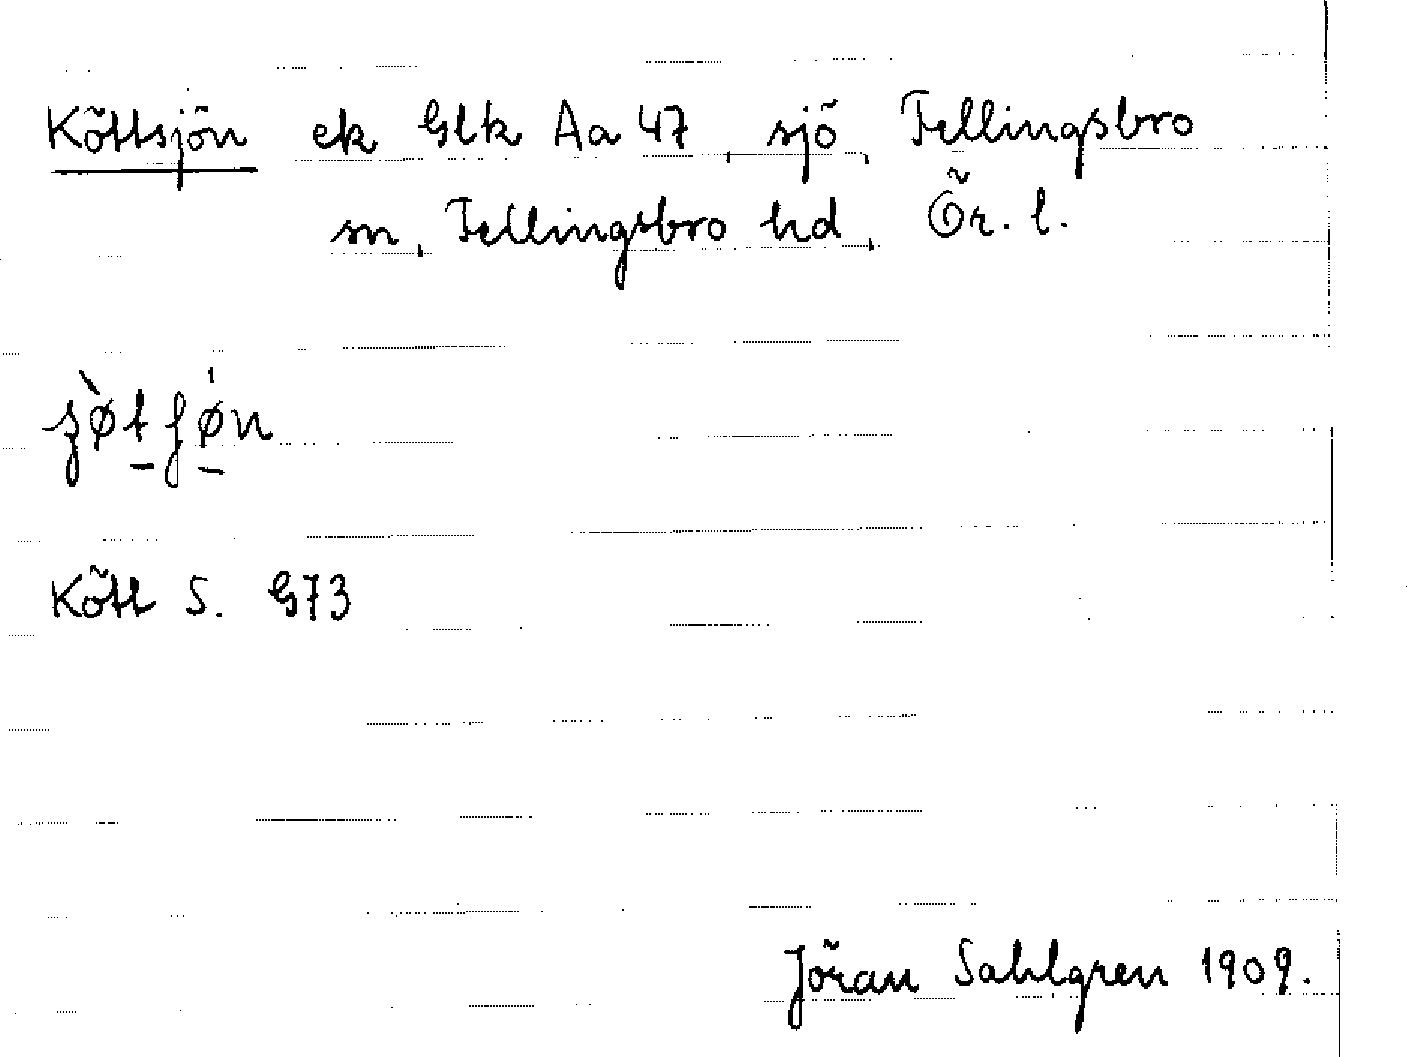 Köttsjön ek Glk Aa 47, sjö, Fellingsbro
sn, Fellingsbro hd, Ör. l.
Kött S. G73
Jöran Sahlgren 1909.